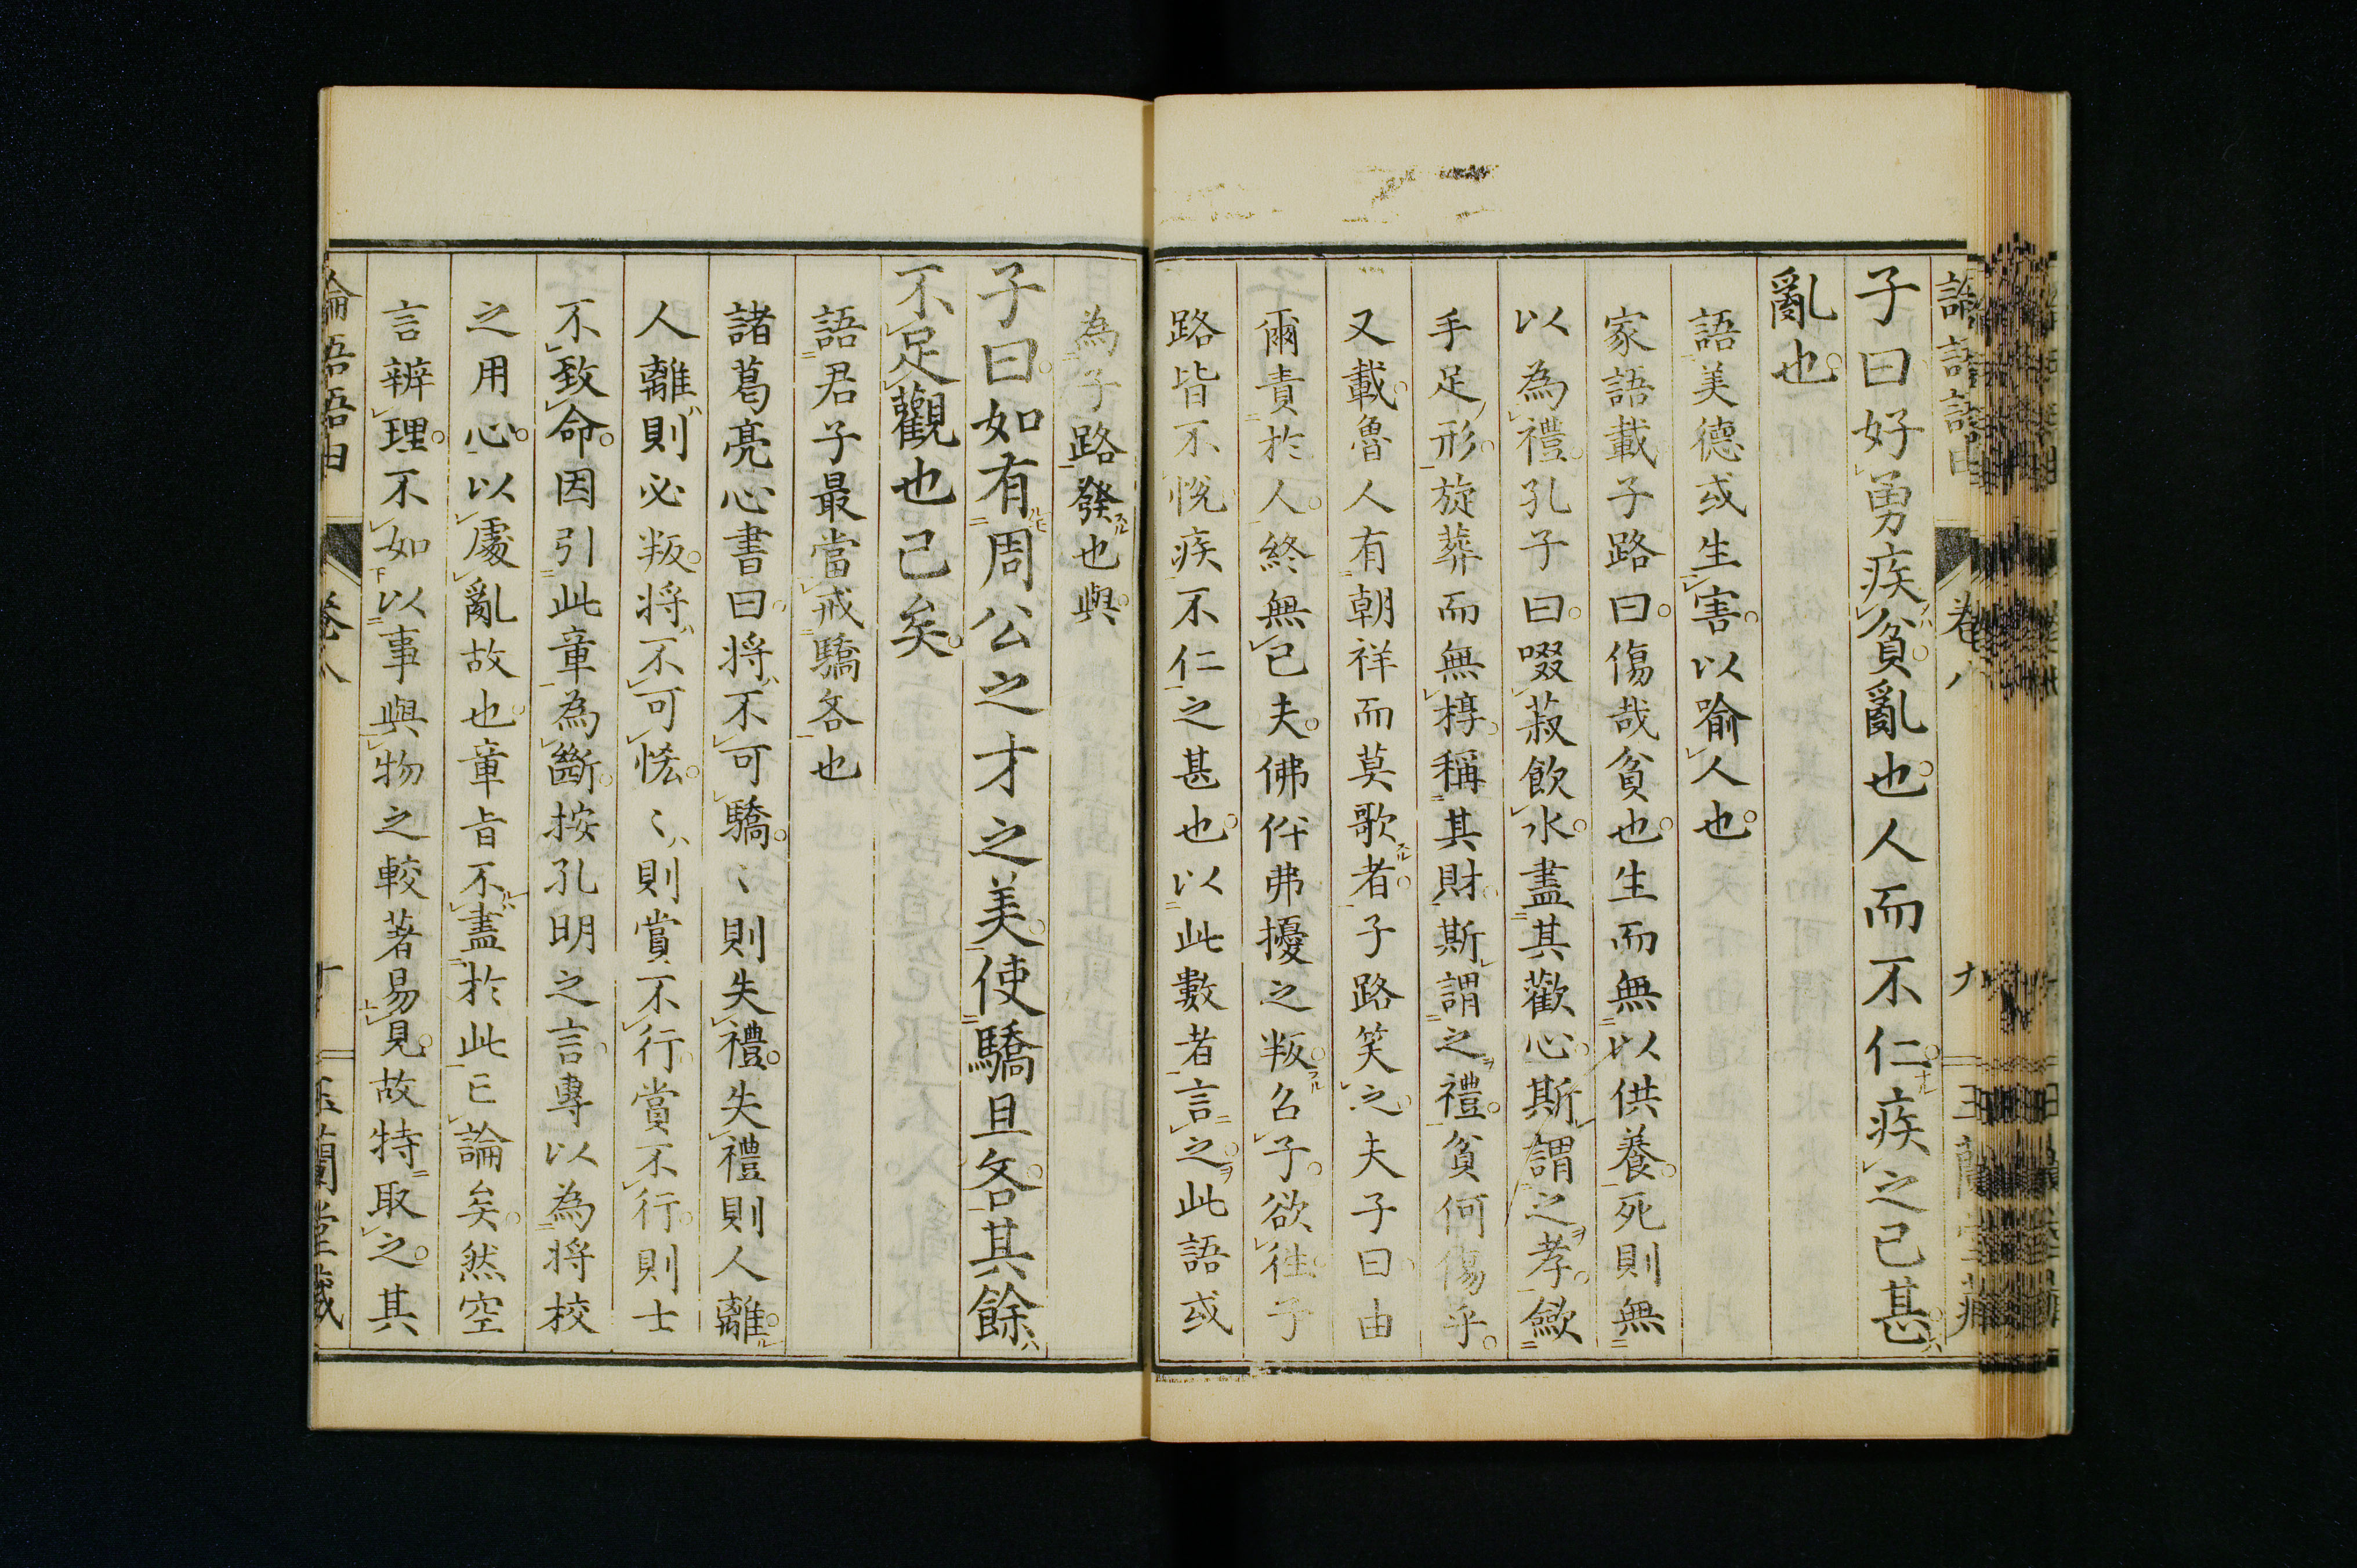 子曰好勇疾貧亂也人而不仁疾之已甚
亂也
語美德或生害以喻人也
家語載子路曰傷哉貧也生而無以供養死則無
以為禮孔子曰啜菽飲水盡其歡心斯謂之孝斂
手足形旋葬而無椁稱其財斯謂之禮貧何傷乎
又載魯人有朝祥而莫歌者子路笑之夫子曰由
爾責於人終無已夫佛佾弗擾之叛召子欲往子
路皆不悅疾不仁之甚也以此數者言之此語或
為子路發也與
子曰如有周公之才之美使驕且吝其餘
不足觀也已矣
語君子最當戒驕吝也
諸葛亮心書曰將不可驕〻則失禮失禮則人離
人離則必叛將不可悋〻則賞不行賞不行則士
不致命因引此章為斷按孔明之言專以為將校
之用心以處亂故也章旨不盡於此已論矣然空
言辨理不如以事與物之較著易見故特取之其
論語語由 卷八 十 玉蘭堂藏